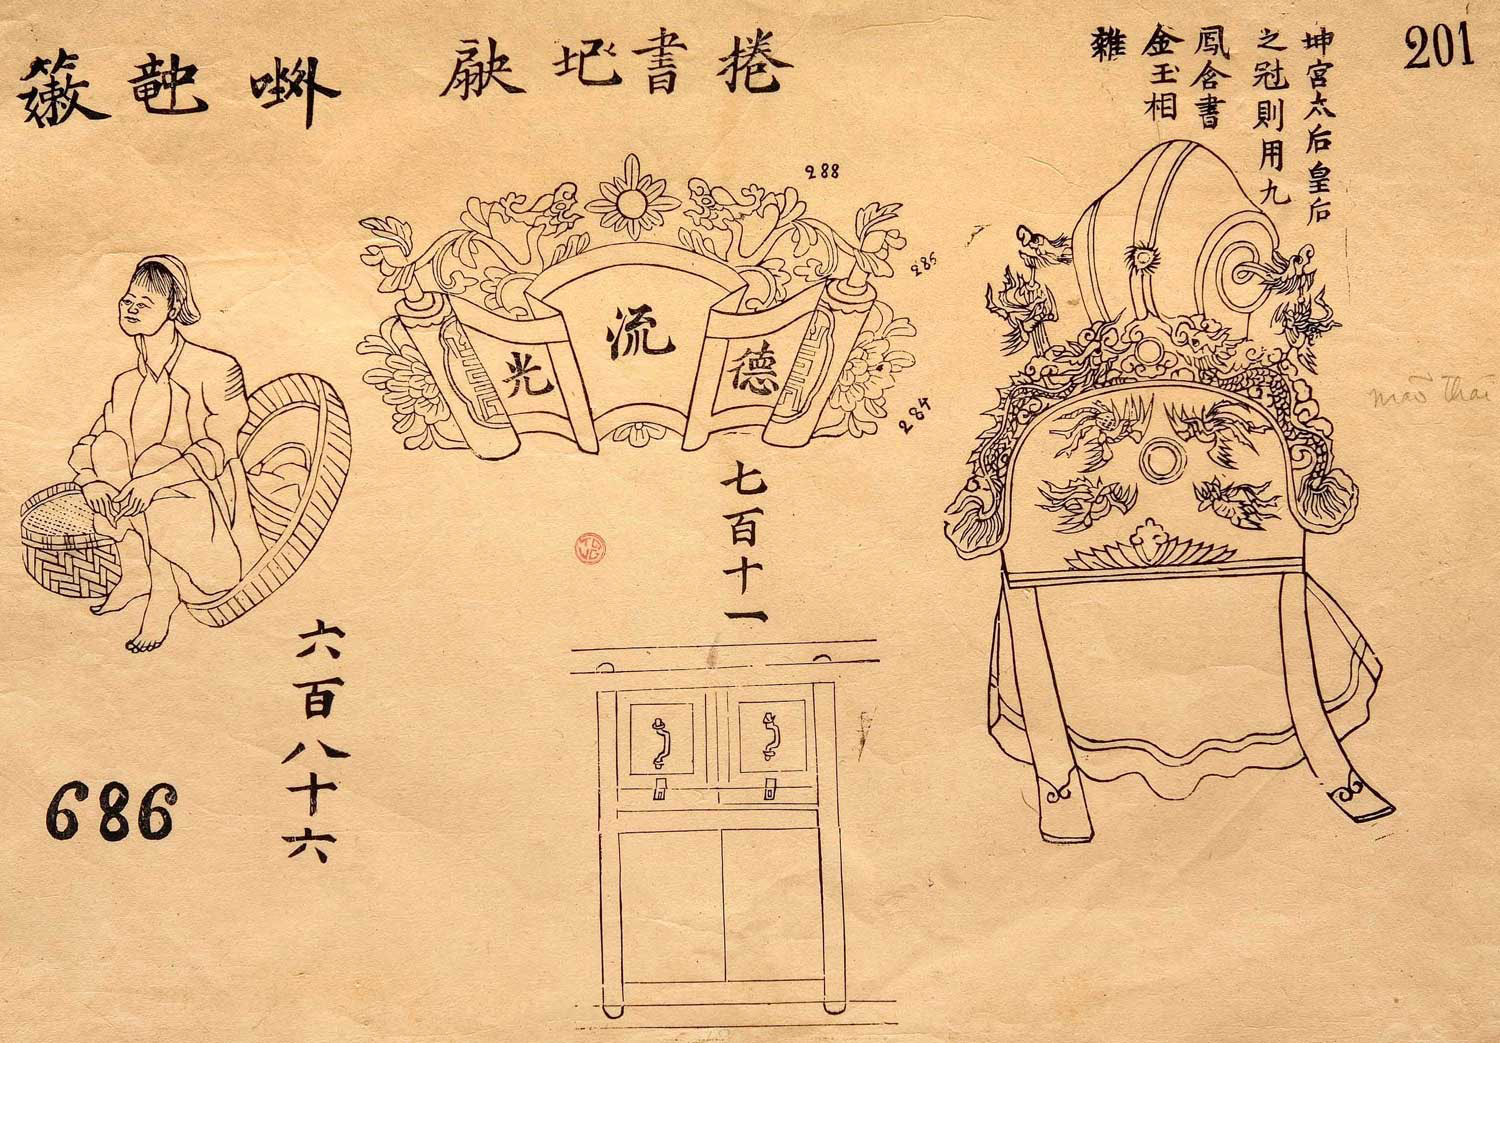 201
坤宮太后皇后
之冠則用九
鳳含書
金玉相
雜
捲書圯
288
286
284
德流光
七百十一
六百八十六
686